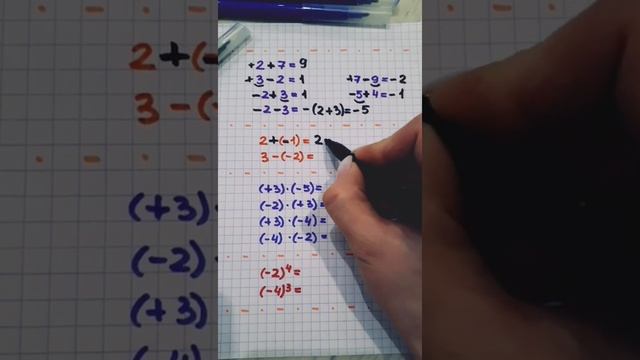 +2+7=9
+3-2=1
+7-9=-2
-2+3=1
-5+4=-1
-2-3=-(2+3)=-5
2+(-1)=2
3-(-2)=
(+3)·(-5)=
(-2)·(+3)=
(+3)·(-4)=
(-4)·(-2)=
(-2)⁴=
(-4)³=